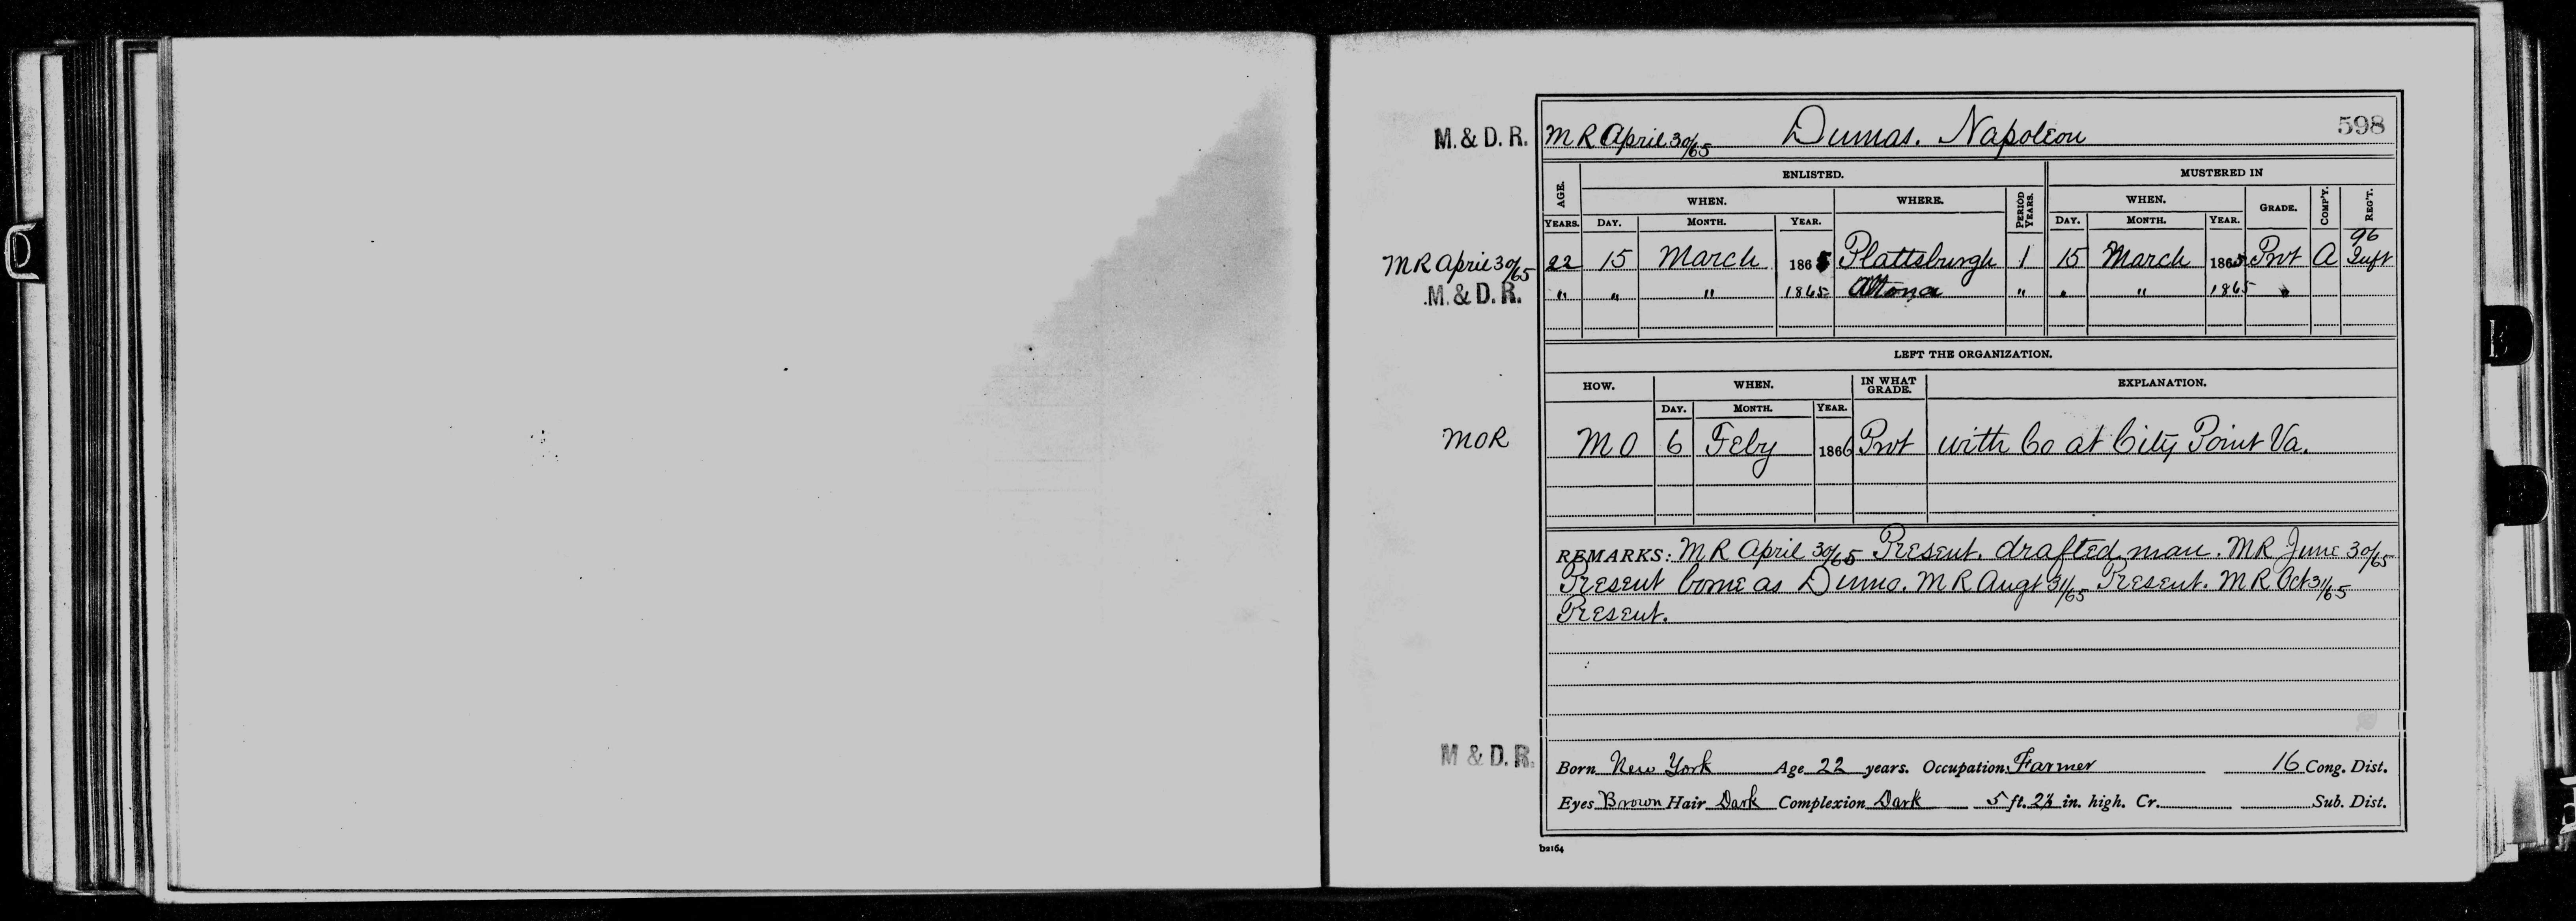 M. & D. R. M R April 30/65 Dumas. Napoleon 598
AGE. ENLISTED. MUSTERED IN
WHEN. WHERE. PERIOD YEARS. WHEN. GRADE. COMP'Y. REG'T.
YEARS. DAY. MONTH. YEAR. DAY. MONTH. YEAR.
96
M R April 30/65 22 15 March 1865 Plattsburgh 1 15 March 1865 Pvt A Inft
M. & D. R. " " " 1865 Altona " " " 1865 "
LEFT THE ORGANIZATION.
HOW. WHEN. IN WHAT GRADE. EXPLANATION.
DAY. MONTH. YEAR.
MOR M O 6 Feby 1866 Pvt with Co at City Point Va.
REMARKS: M R April 30/65 Present. drafted man. M R June 30/65
Present borne as Duma. M R Augt 31/65 Present. M R Oct 31/65
Present.
M & D. R. Born New York Age 22 years. Occupation Farmer 16 Cong. Dist.
Eyes Brown Hair Dark Complexion Dark 5 ft. in. high. Cr. Sub. Dist.
b2164